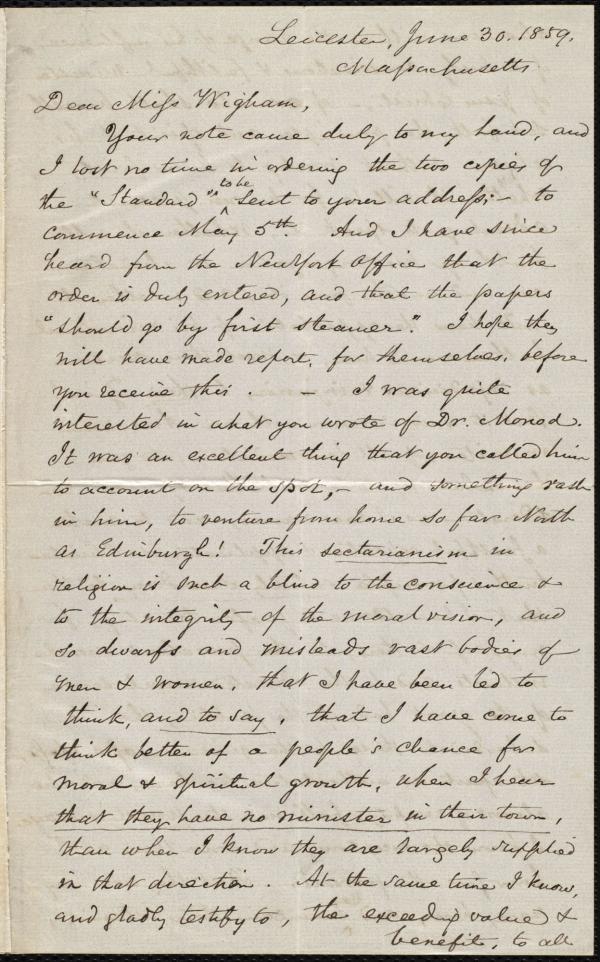 Leicester, June 30. 1859.
Massachusetts
Dear Miss Wigham,
Your note came duly to my hand, and
I lost no time in ordering the two copies of
the "Standard" to be sent to your address; - to
commence May 5th. And I have since
heard from the NewYork Office that the
order is duly entered, and that the papers
"should go by first steamer." I hope they
will have made report, for themselves, before
you receive this. - I was quite
interested in what you wrote of Dr. Monod.
It was an excellent thing that you called him
to account on the spot, - and something rash
in him, to venture from home so far North
as Edinburgh! This sectarianism in
religion is such a blind to the conscience &
to the integrity of the moral vision, and
so dwarfs and misleads vast bodies of
men & women, that I have been led to
think, and to say, that I have come to
think better of a people's chance for
moral & spiritual growth, when I hear
that they have no minister in their town,
than when I know they are largely supplied
in that direction. At the same time I know,
and gladly testify to, the exceeding value &
benefit, to all